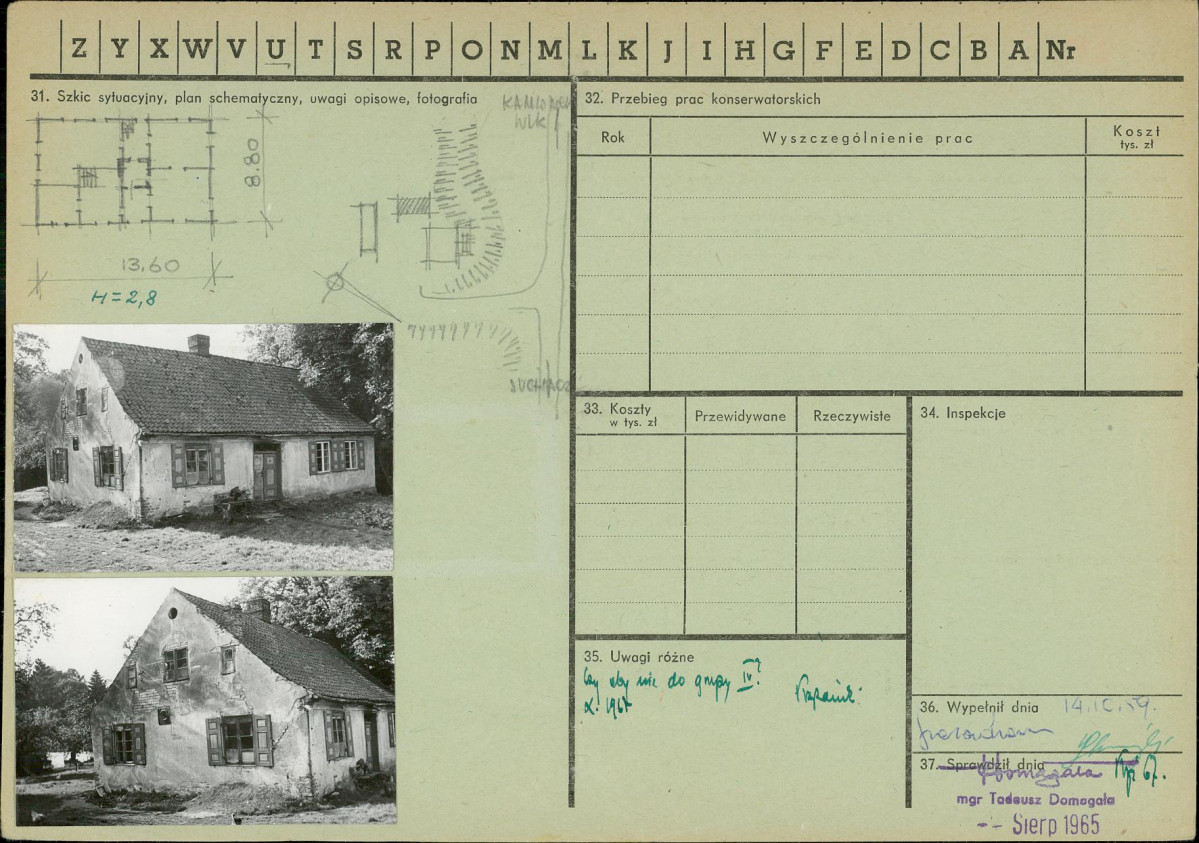 Z Y X W V U T S R P O N M L K J I H G F E D C B A Nr
31. Szkic sytuacyjny, plan schematyczny, uwagi opisowe, fotografia
WLK
8.80
13.60
H = 2,8
32. Przebieg prac konserwatorskich
Rok
Wyszczególnienie prac
Koszt
tys. zł
33. Koszty
w tys. zł
Przewidywane
Rzeczywiste
34. Inspekcje
35. Uwagi różne
Czy aby nie do grupy IV?
1967
36. Wypełnił dnia
37. Sprawdził dnia
Domagała
67.
mgr Tadeusz Domagała
-- Sierp 1965